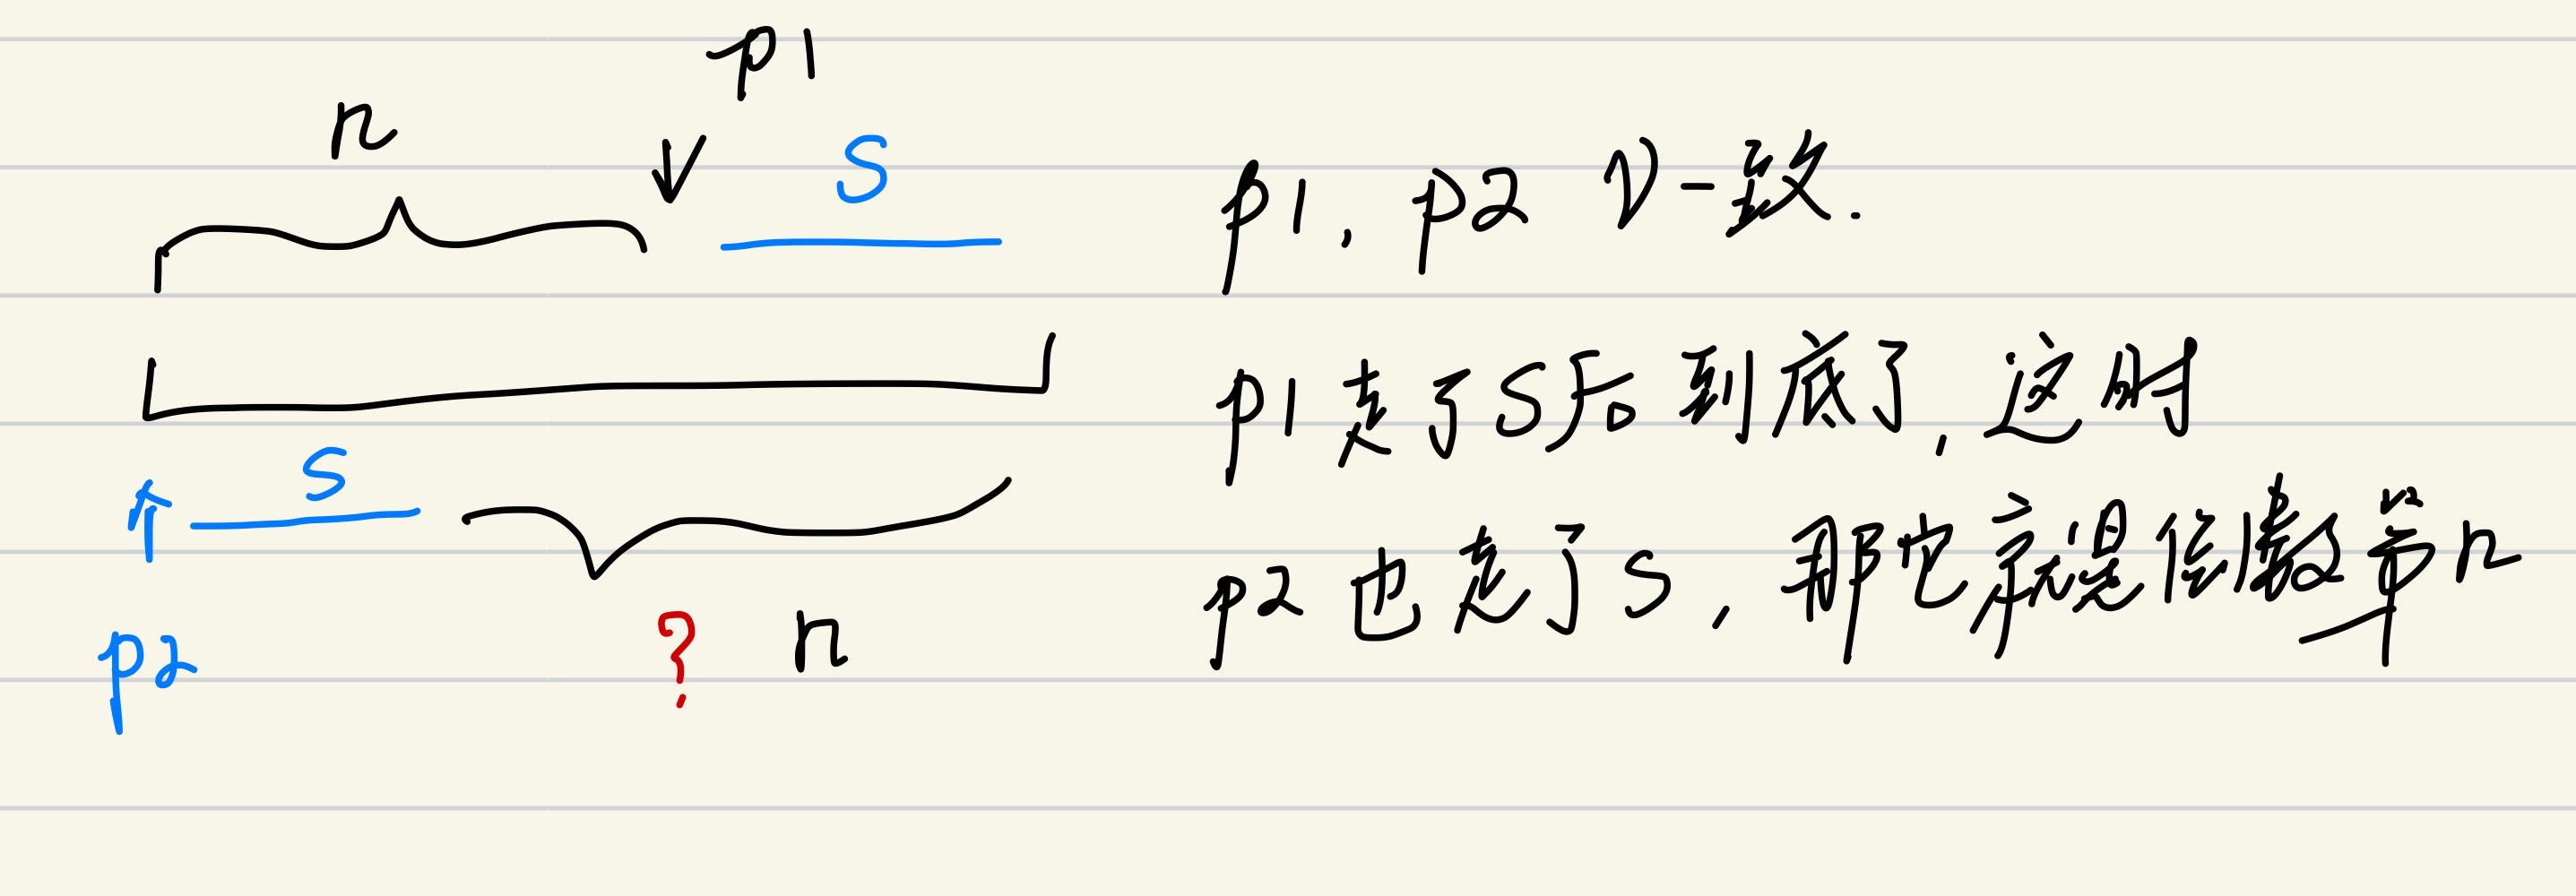 p1
n
S
p1, p2 v一致.
p1走了S后到底了,这时
S
p2也走了S,那它就是倒数第n
? n
p2